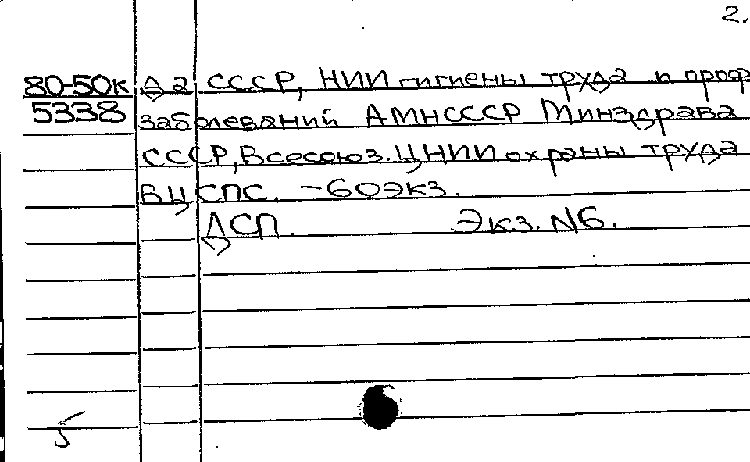 2.
80-50к да СССР, НИИ гигиены труда и проф
5338 заболеваний АМНСССР Минздрава
СССР, Всесоюз. ЦНИИ охраны труда
ВЦСПС. - 60экз.
ДСП. Экз. N6.
5